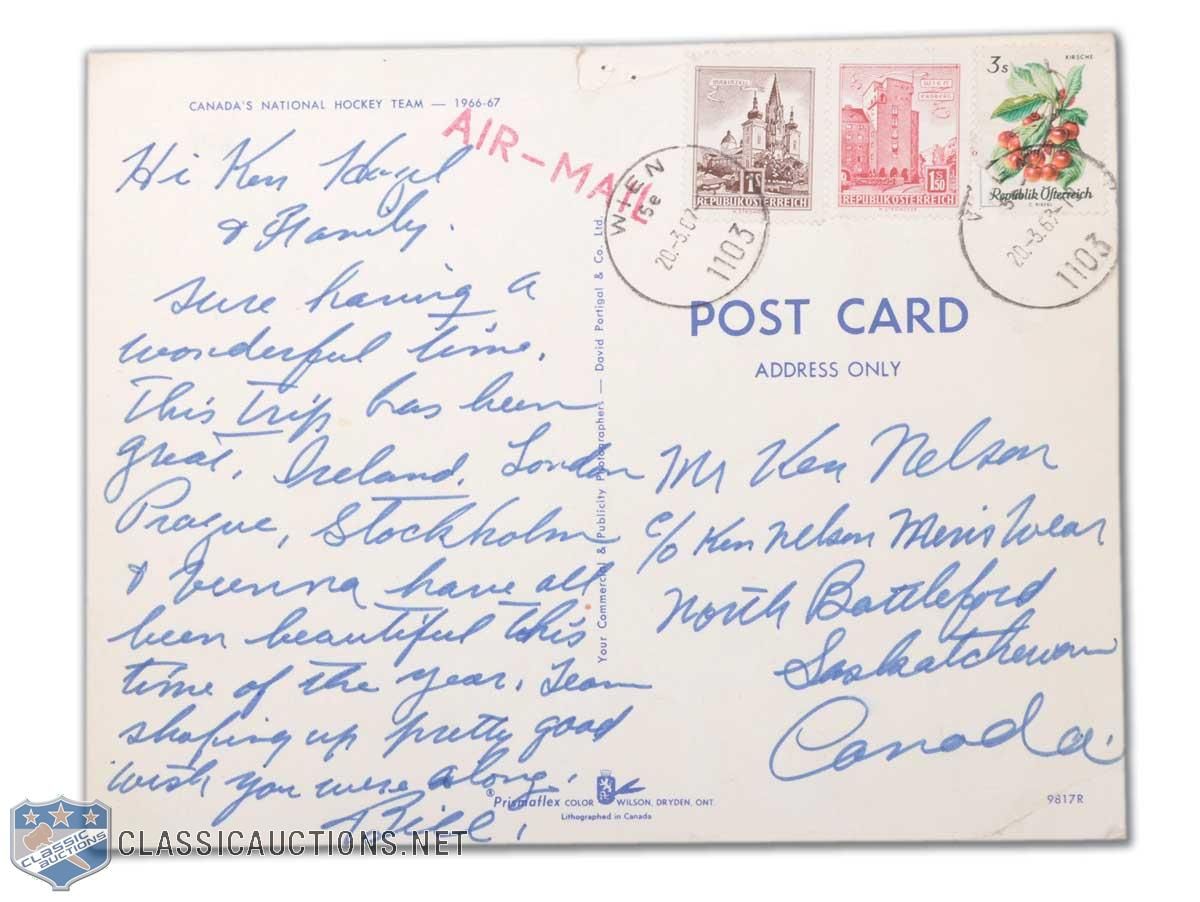 CANADA'S NATIONAL HOCKEY TEAM — 1966-67
AIR-MAIL
Hi Ken
& Family.
Sure having a
wonderful time.
This Trip has been
great, Ireland, London
Prague, Stockholm
& Vienna have all
been beautiful this
time of the year. Team
shaping up pretty good
wish you were along.
Bill.
Your Commercial & Publicity Photographer — David Portigal & Co. Ltd.
MARIAZELL
1S
REPUBLIK ÖSTERREICH
WIEN
1S
1.50
REPUBLIK ÖSTERREICH
3s
KIRSCHE
Republik Österreich
WIEN
20.-3.67-
1103
20.-3.67-
1103
POST CARD
ADDRESS ONLY
Mr Ken Nelson
c/o Ken Nelson Men's Wear
North Battleford
Saskatchewan
Canada.
®Prismaflex COLOR WILSON, DRYDEN, ONT.
Lithographed in Canada
9817R
CLASSIC
AUCTIONS
CLASSICAUCTIONS.NET